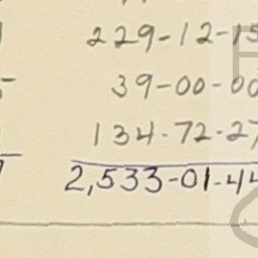 229-12-15
39-00-00
134-72-27
2,533-01-44